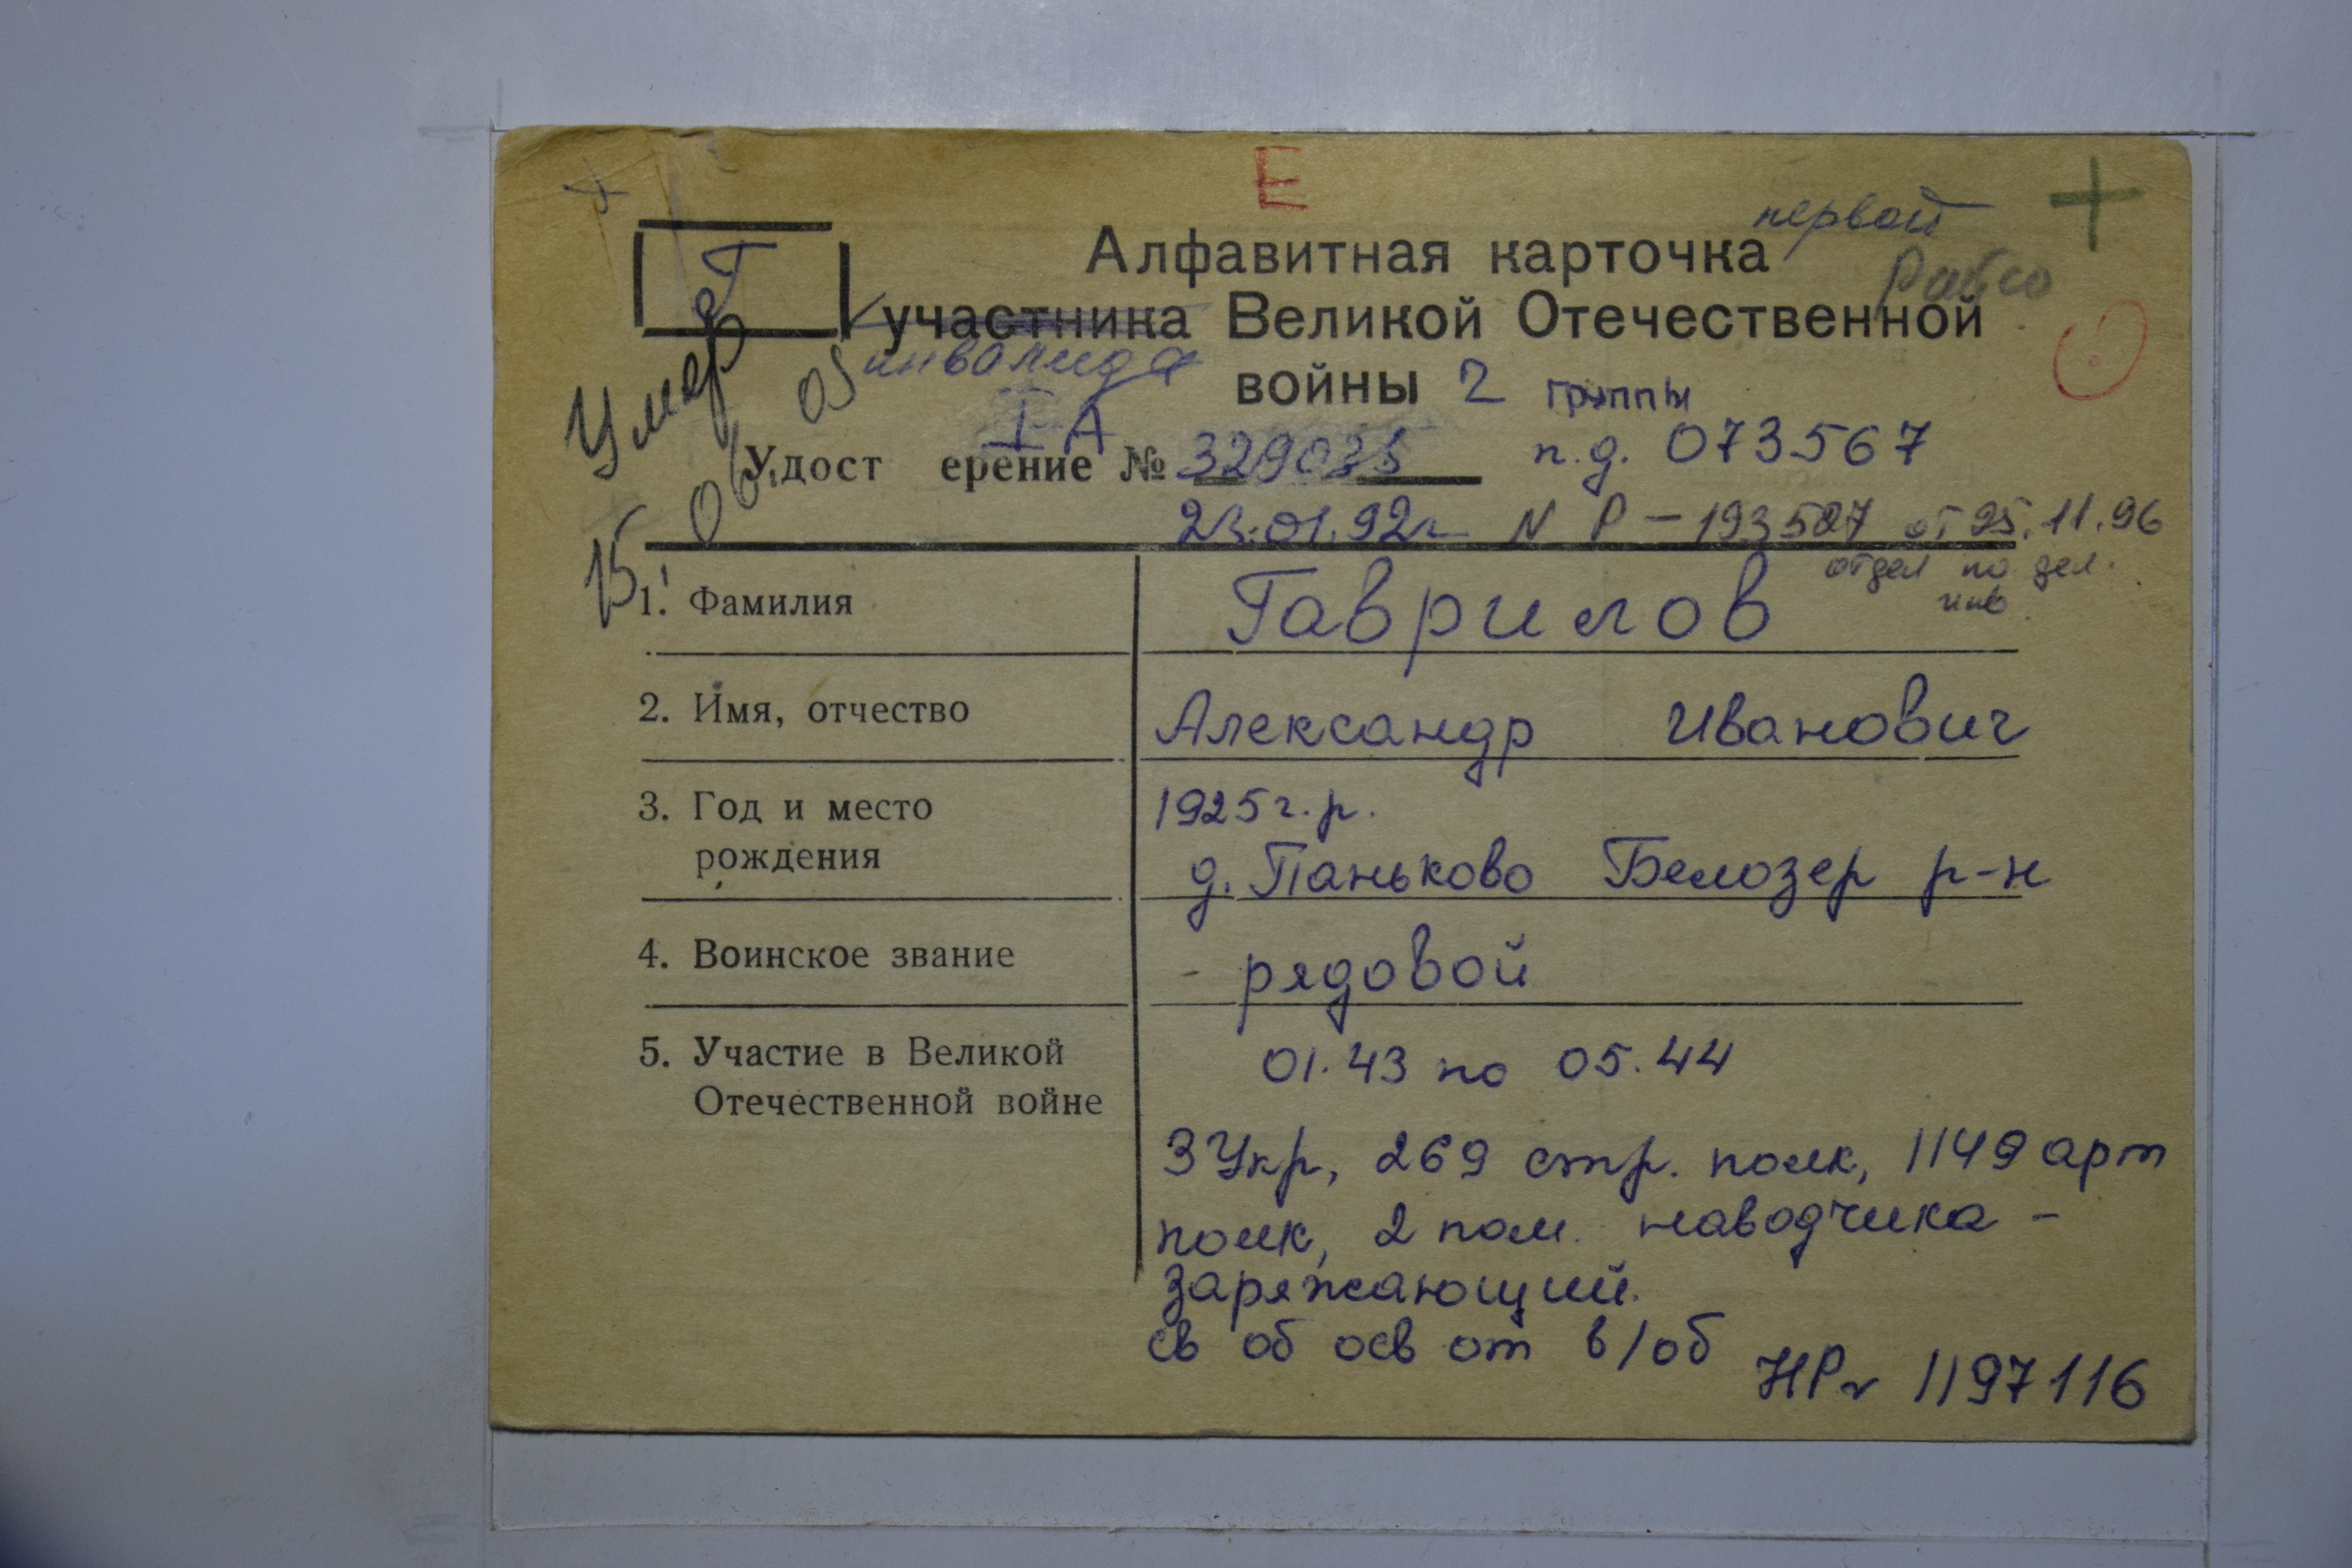 Е
Алфавитная карточка
первой
Г
участника Великой Отечественной
инвалида
войны 2 группы
Умер
15.06.05
I А
Удост ерение № 329035 п.д. 073567
23.01.92г N Р-193527 от 25.11.96
отдел по дел.
инв.
1. Фамилия Гаврилов
2. Имя, отчество Александр Иванович
3. Год и место 1925 г.р.
рождения д. Паньково Белозер р-н
4. Воинское звание - рядовой
5. Участие в Великой 01.43 по 05.44
Отечественной войне
3 Укр, 269 стр. полк, 1149 арт
полк, 2 пом. наводчика -
заряжающий.
св об осв от в/об
НР 1197116